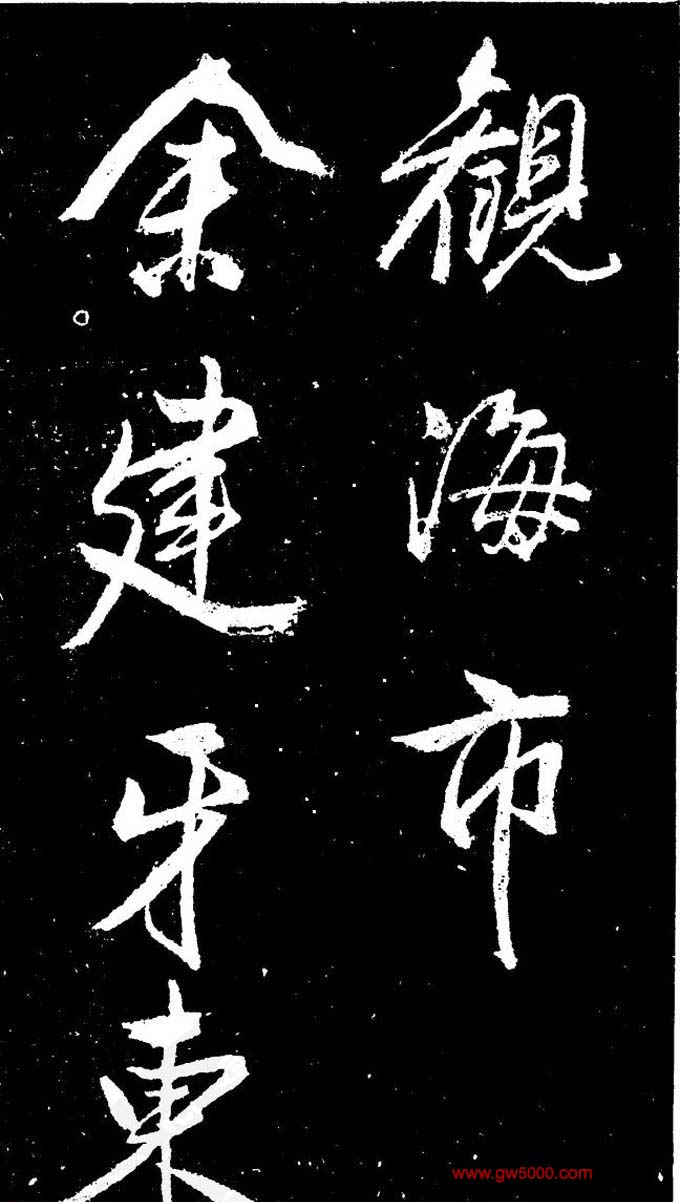 觀海市
余建牙東
www.gw5000.com